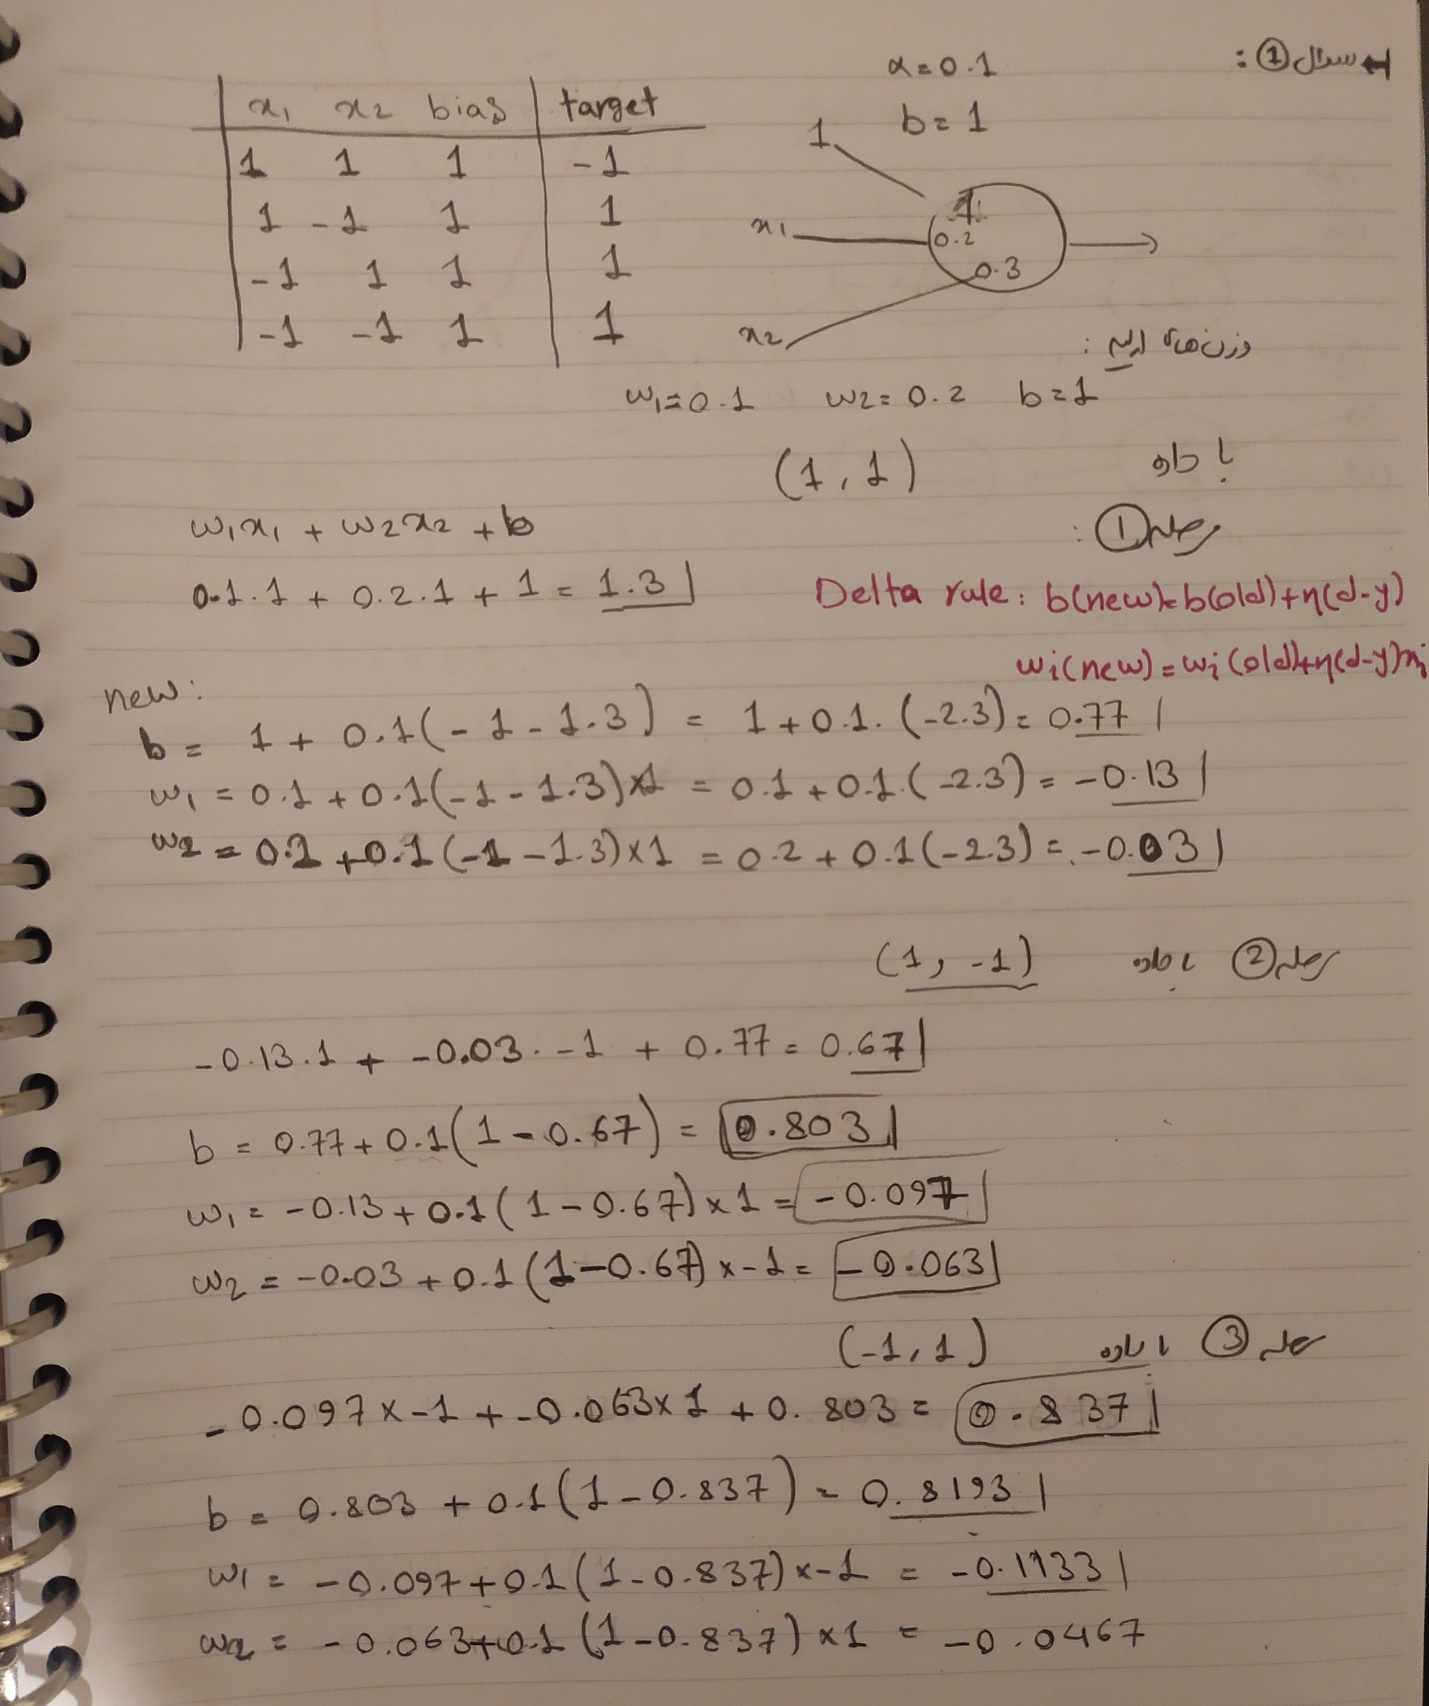 ← سوال ①:
α = 0.1
b = 1
x₁ x₂ bias target
1 1 1 -1
1 -1 1 1
-1 1 1 1
-1 -1 1 1
1
x₁ 0.2
0.3
x₂
وزن های اولیه :
w₁=0.1 w₂=0.2 b=1
با داده (1,1)
مرحله ① :
w₁x₁ + w₂x₂ + b
0.1.1 + 0.2.1 + 1 = 1.3
Delta rule: b(new)=b(old)+η(d-y)
wi(new)=wi(old)+η(d-y)xi
new:
b = 1 + 0.1(-1-1.3) = 1+0.1.(-2.3)= 0.77
w₁ = 0.1 + 0.1(-1-1.3)×1 = 0.1+0.1.(-2.3) = -0.13
w₂ = 0.2 +0.1(-1-1.3)×1 = 0.2+0.1(-2.3) = -0.03
مرحله ② با داده (1, -1)
-0.13.1 + -0.03.-1 + 0.77 = 0.67
b = 0.77+0.1(1-0.67) = 0.803
w₁ = -0.13+0.1(1-0.67)×1 = -0.097
w₂ = -0.03+0.1(1-0.67)×-1= -0.063
مرحله ③ با داده (-1,1)
-0.097×-1 + -0.063×1 + 0.803 = 0.837
b = 0.803 + 0.1(1-0.837) = 0.8193
w₁ = -0.097+0.1(1-0.837)×-1 = -0.1133
w₂ = -0.063+0.1(1-0.837)×1 = -0.0467